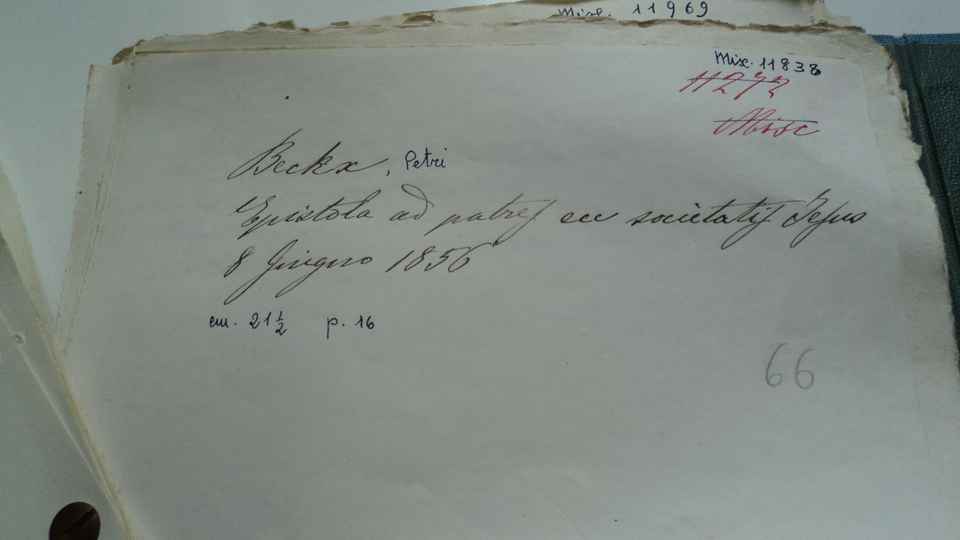 Misc. 11969
Misc. 11838
11272
Misc
Beckx, Petri
Epistola ad patres ecc societatis Jesus
8 Giugno 1856
cm. 21 1/2 p. 16
66